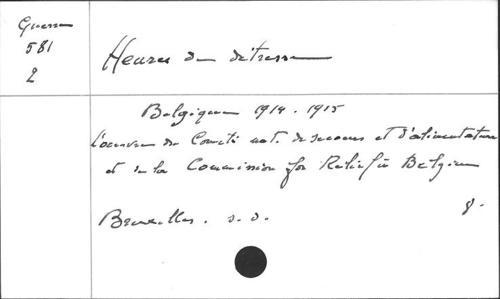 Guerre
581
2
Heures de détresse
Belgique 1914-1915
L'oeuvre du Comité nat. de secours et d'alimentation
et de la Commission for Relief in Belgium
Bruxelles. s.d.
8.